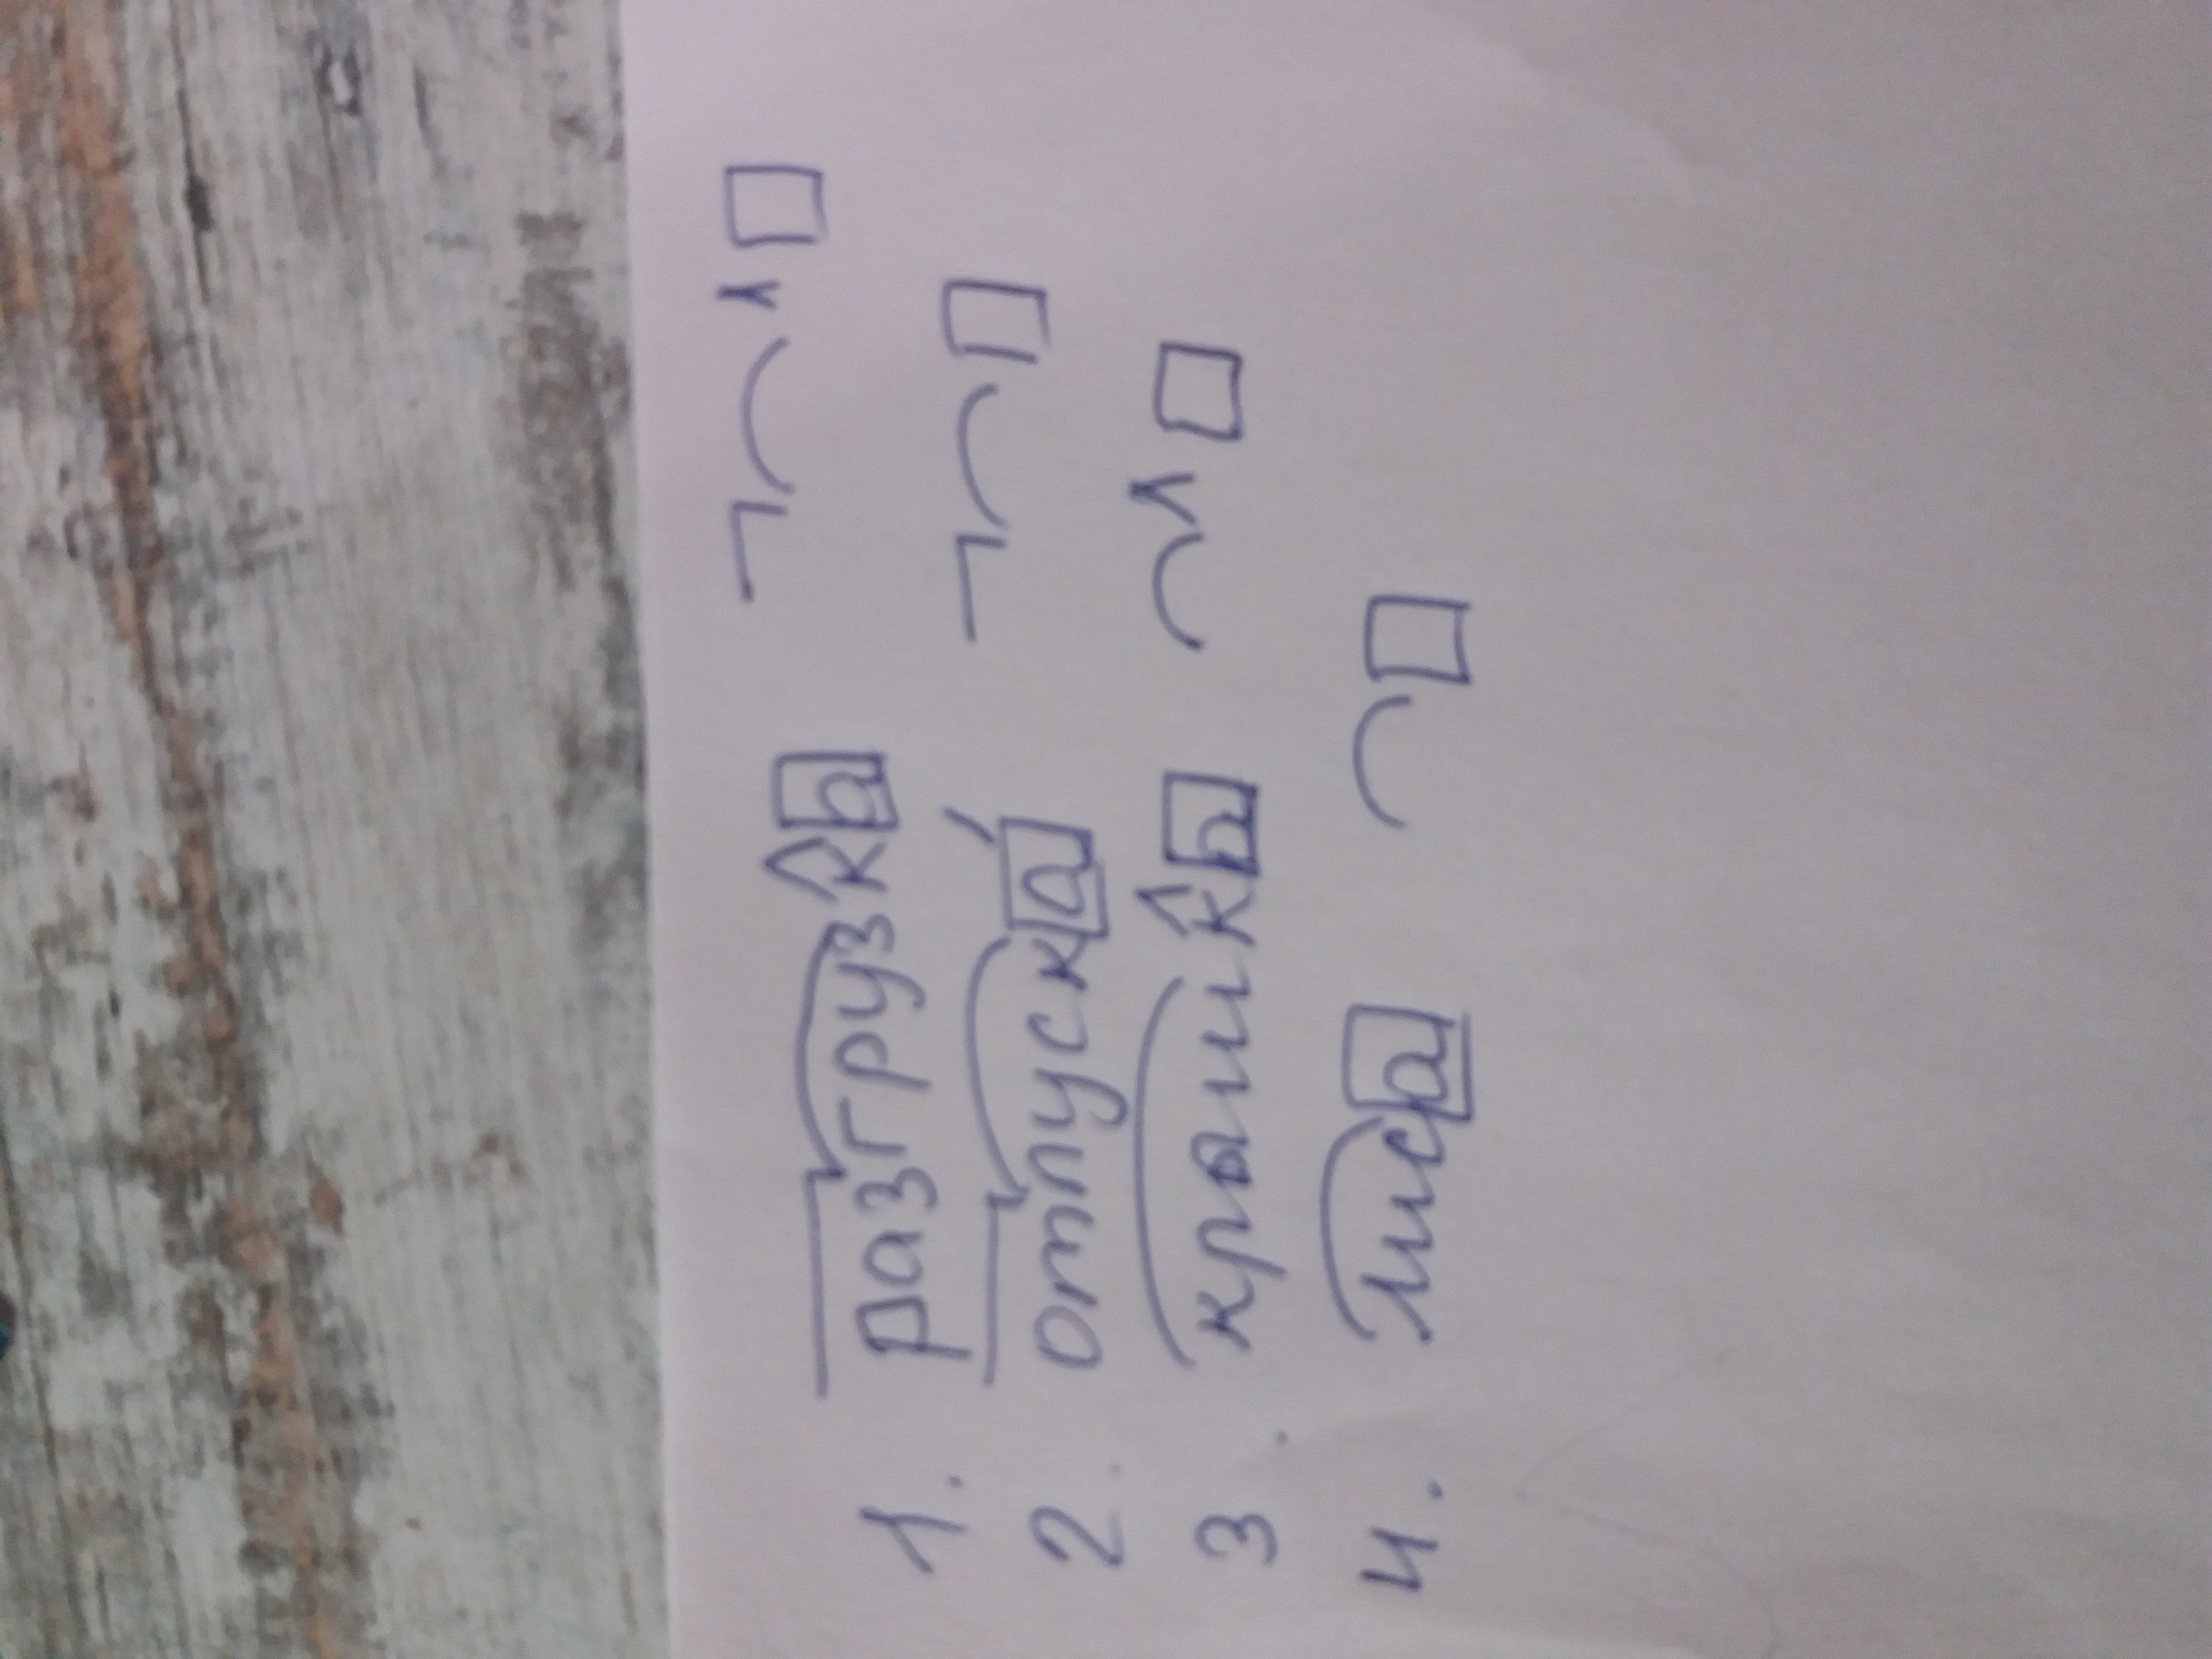 1. разгрузка
2. отпуска́
3. краика
4. лиса